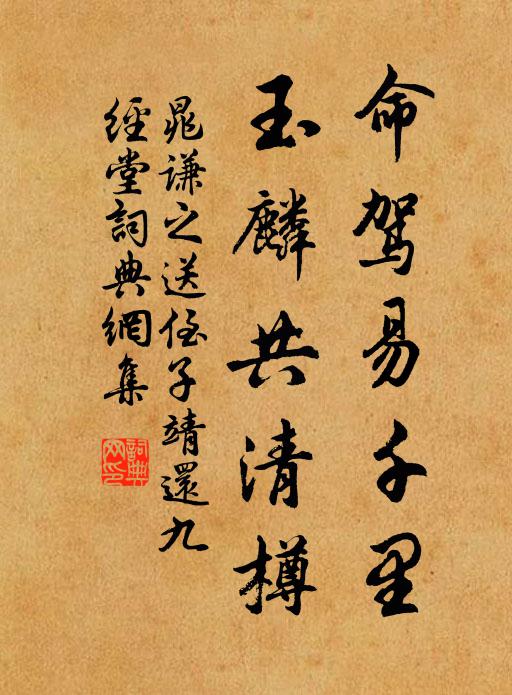 命驾易千里
玉麟共清樽
晁谦之送侄子靖還九
經堂詞典網集
詞典网印